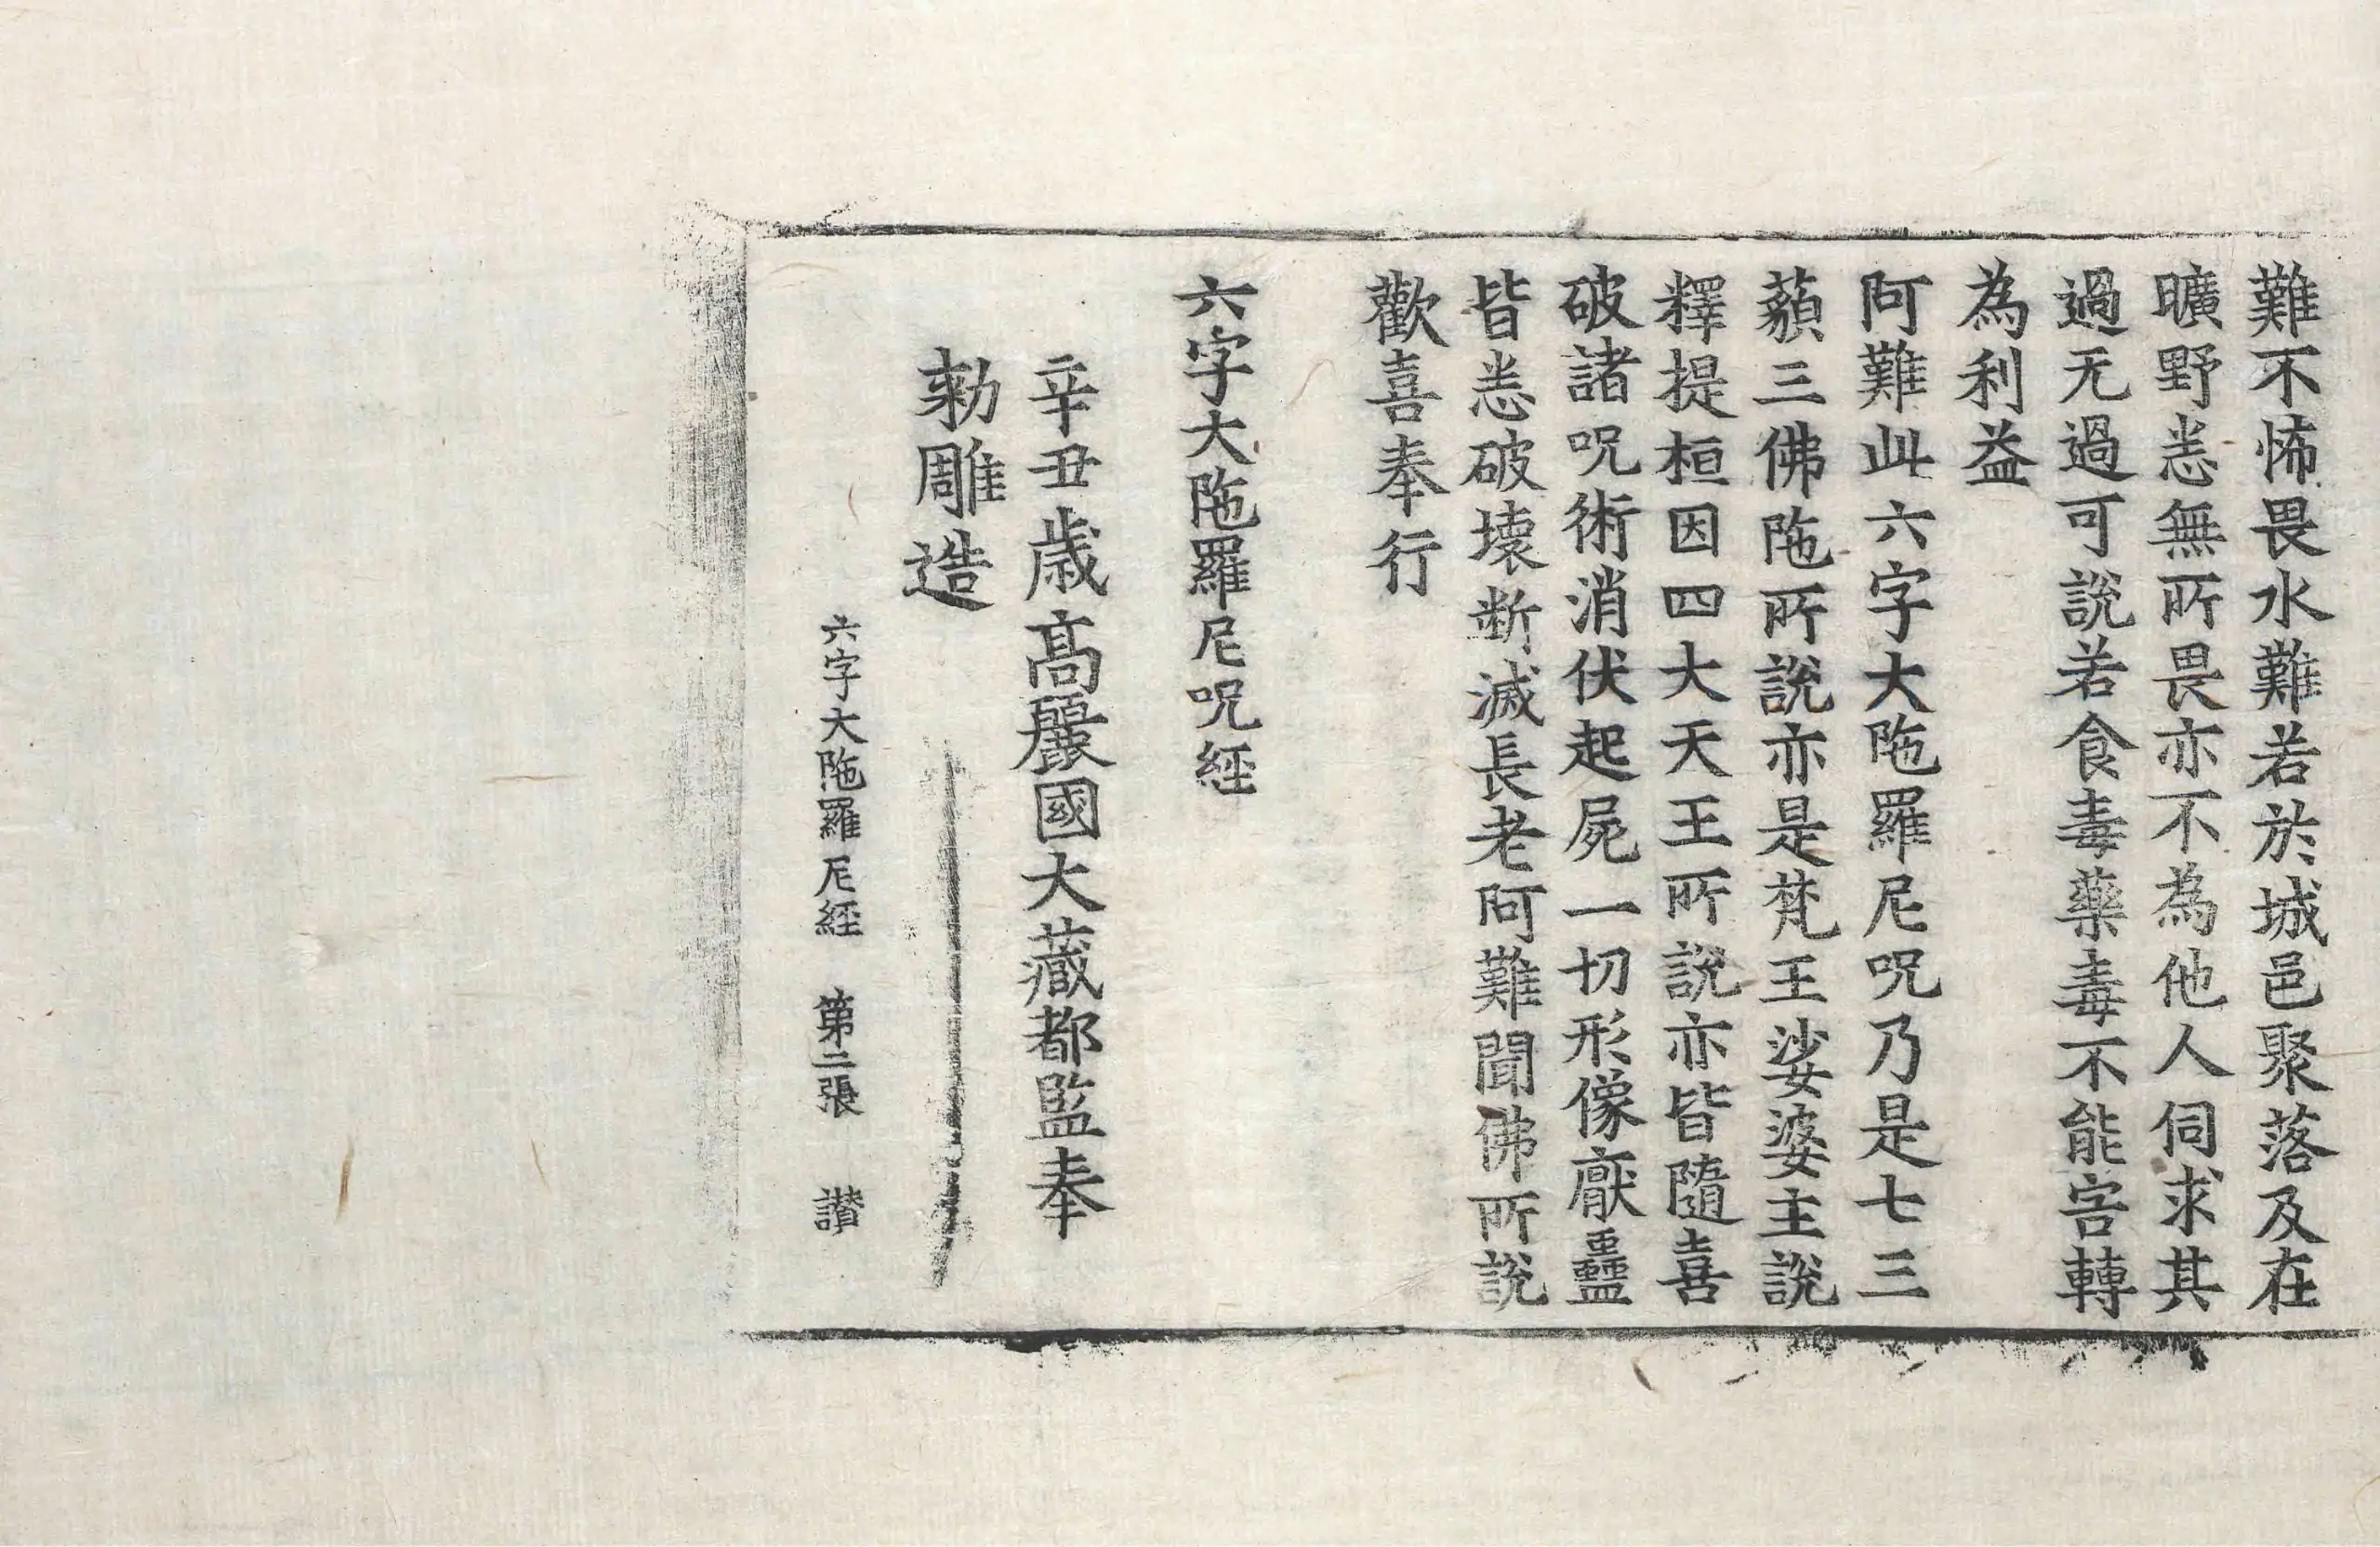 難不怖畏水難若於城邑聚落及在
曠野悉無所畏亦不為他人伺求其
過无過可說若食毒藥毒不能害轉
為利益
阿難此六字大陁羅尼呪乃是七三
藐三佛陁所說亦是梵王娑婆主說
釋提桓因四大天王所說亦皆隨喜
破諸呪術消伏起屍一切形像厭蠱
皆悉破壞断滅長老阿難聞佛所說
歡喜奉行
六字大陁羅尼呪經
辛丑歳髙麗國大藏都監奉
勑雕造
六字大陁羅尼經 第二張 讃